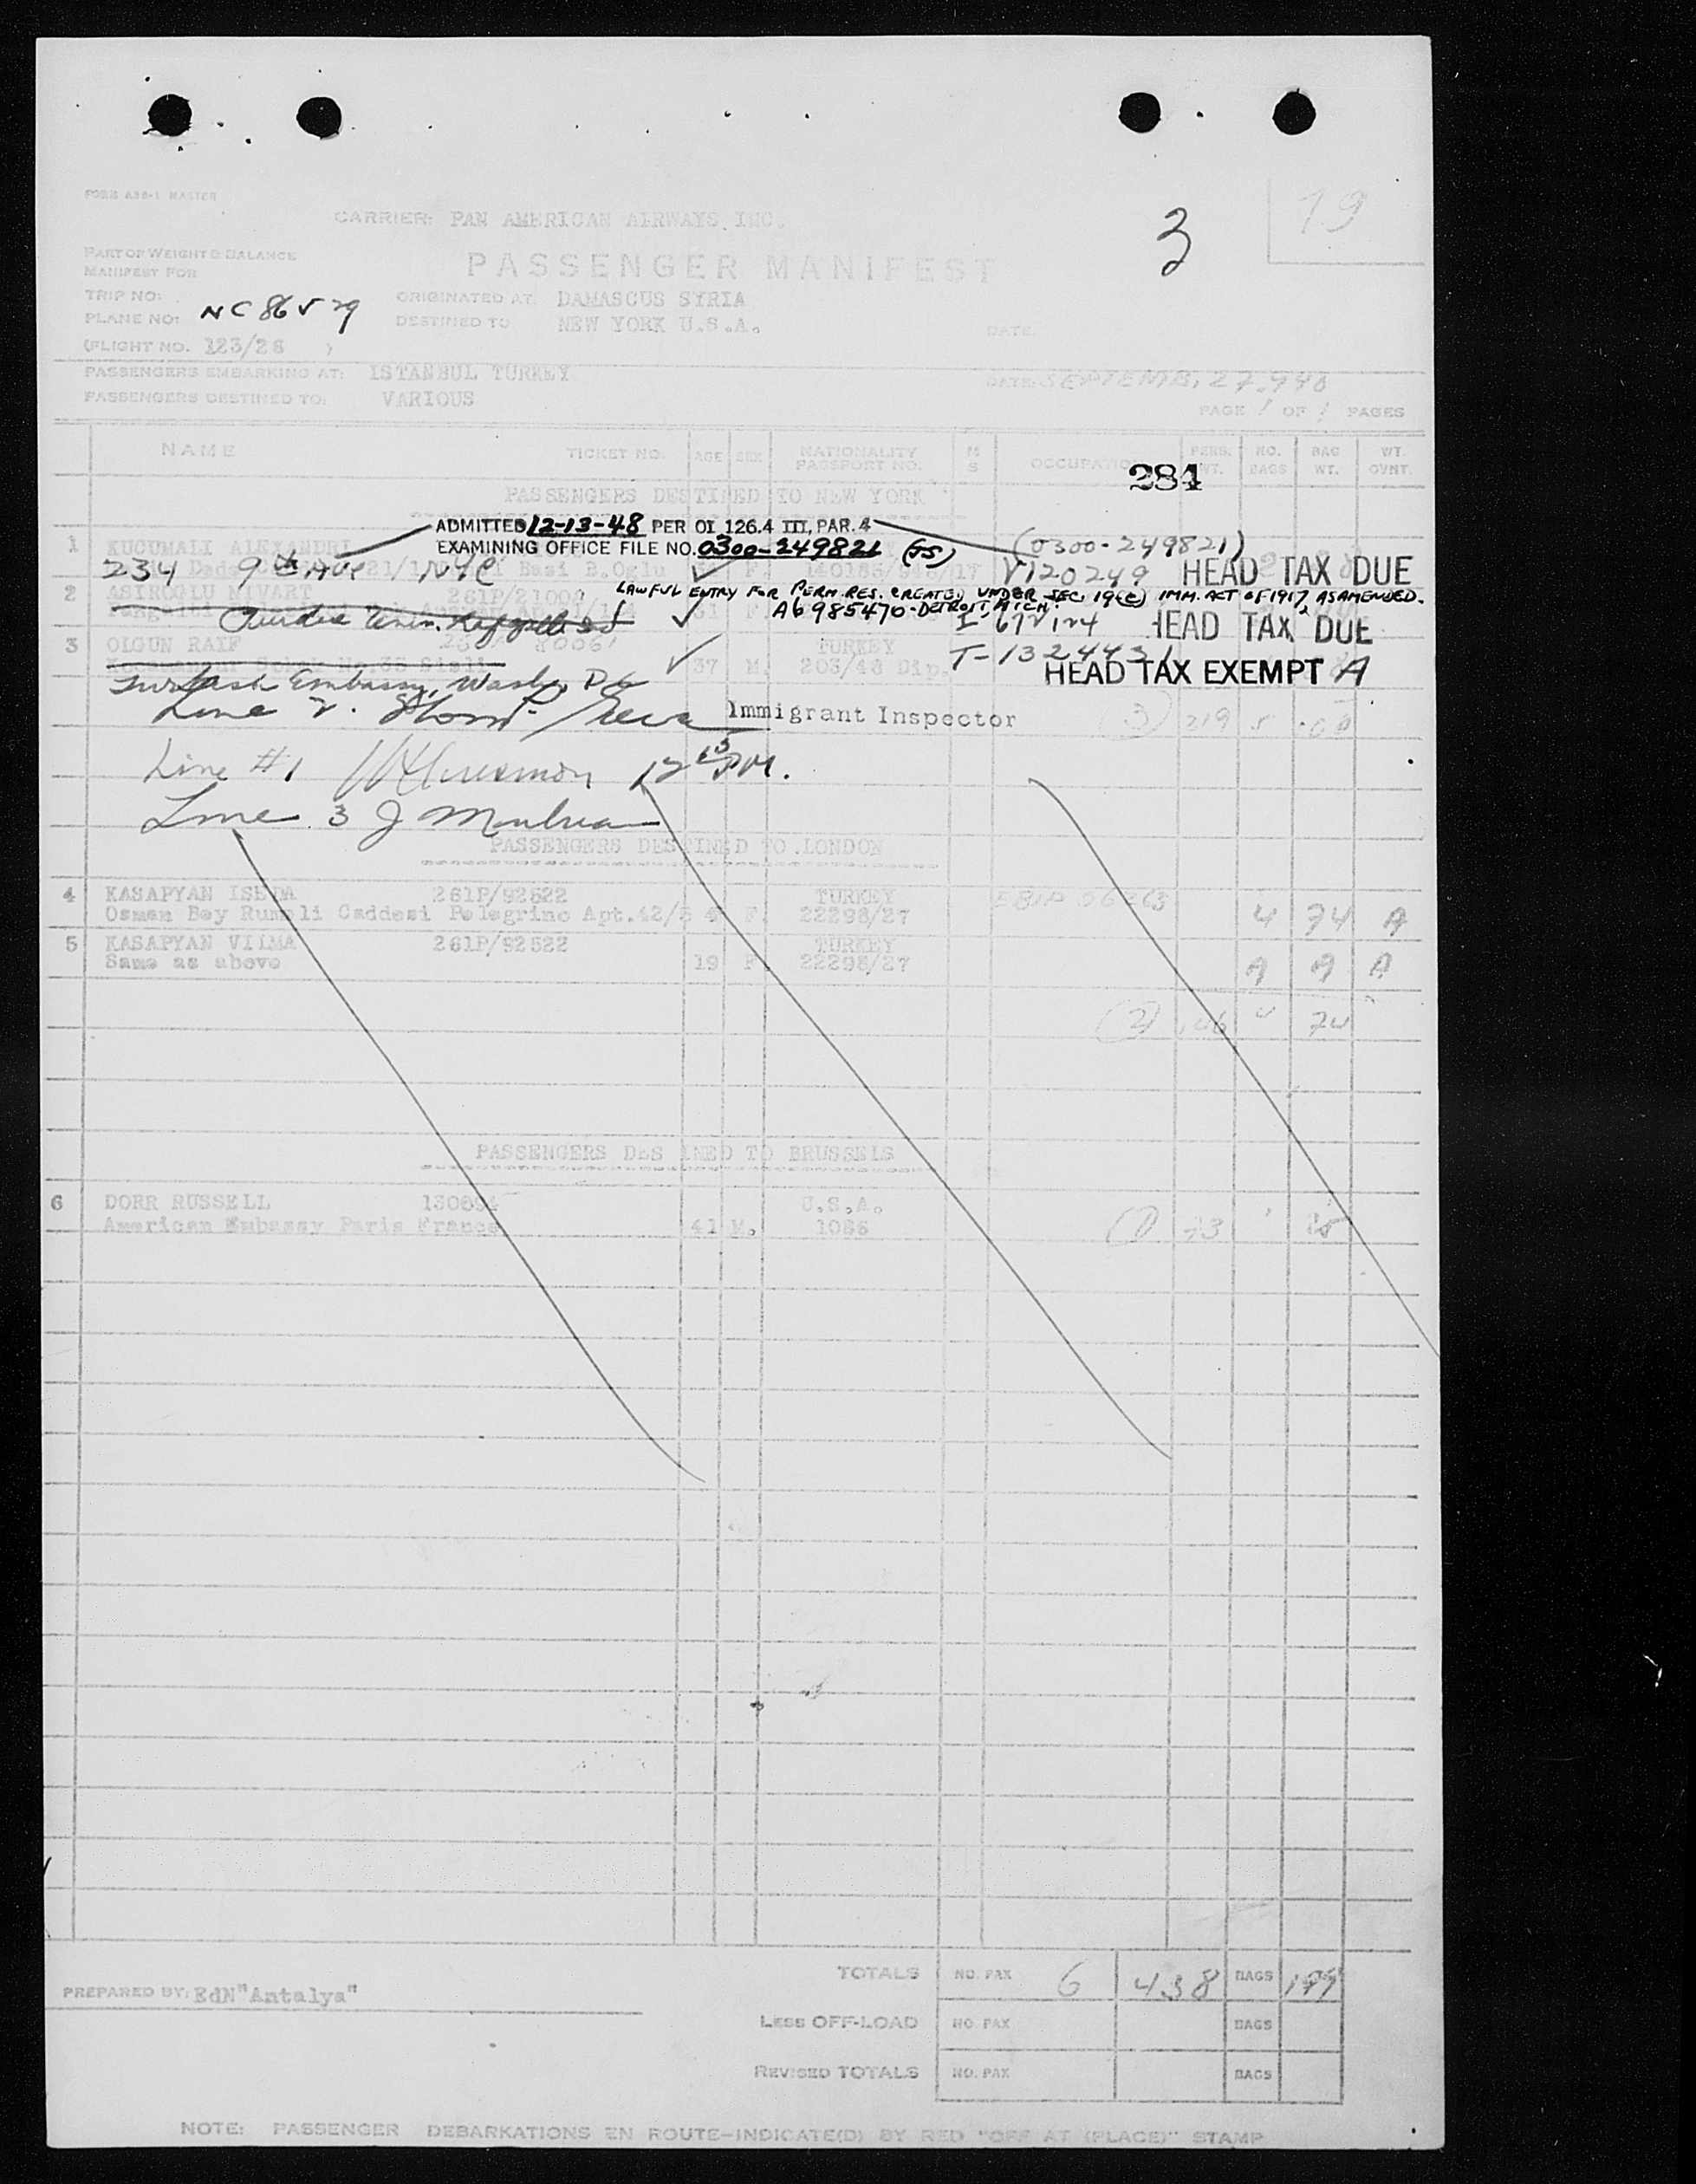 FORM A38-1 MASTER
CARRIER: PAN AMERICAN AIRWAYS, INC.
3
19
PART OF WEIGHT & BALANCE
MANIFEST FOR
PASSENGER MANIFEST
TRIP NO:
ORIGINATED AT: DAMASCUS SYRIA
PLANE NO: NC 86529
DESTINED TO NEW YORK U.S.A.
DATE:
(FLIGHT NO. 123/26 )
PASSENGERS EMBARKING AT: ISTANBUL TURKEY
DATE: SEPTEMB, 27.
PASSENGERS DESTINED TO: VARIOUS
PAGE 1 OF 1 PAGES
NAME TICKET NO. AGE SEX NATIONALITY PASSPORT NO. M S OCCUPATION PERS. WT. NO. BAGS BAG WT. WT. OVNT.
284
PASSENGERS DESTINED TO NEW YORK
ADMITTED 12-13-48 PER OI 126.4 III, PAR. 4
1 KUCUMALI ALEXANDRI
EXAMINING OFFICE FILE NO. 0300-249821 (JS)
(0300-249821)
234 9th Ave NYC
V120249 HEAD TAX DUE
2 ASIROGLU NIVART 261P/21004
LAWFUL ENTRY FOR PERM. RES. CREATED UNDER SEC. 19(C) IMM. ACT OF 1917, AS AMENDED.
A6985470-DETROIT, MICH.
HEAD TAX DUE
3 OLGUN RAIF
TURKEY
37 M. 203/48 Dip.
T-1324431
HEAD TAX EXEMPT A
Turkish Embassy, Wash, DC
Line 2.
Immigrant Inspector
(3) 219 5
Line #1
12 15 PM.
Line 3 J
PASSENGERS DESTINED TO LONDON
4 KASAPYAN 261P/92522 TURKEY
Osman Bey Rumeli Caddesi Pelegrino Apt. F. 22298/27 4 74 A
5 KASAPYAN VILMA 261P/92522 TURKEY
Same as above 19 F. 22298/27 A A A
(2) 146 " 74
PASSENGERS DESTINED TO BRUSSELS
6 DORR RUSSELL U.S.A.
American Embassy Paris France 41 M. 1086
(1) 73
TOTALS NO. PAX 6 438 BAGS
PREPARED BY: EdN "Antalya"
LESS OFF-LOAD NO. PAX BAGS
REVISED TOTALS NO. PAX BAGS
NOTE: PASSENGER DEBARKATIONS EN ROUTE-INDICATE(D) BY RED "OFF AT (PLACE)" STAMP